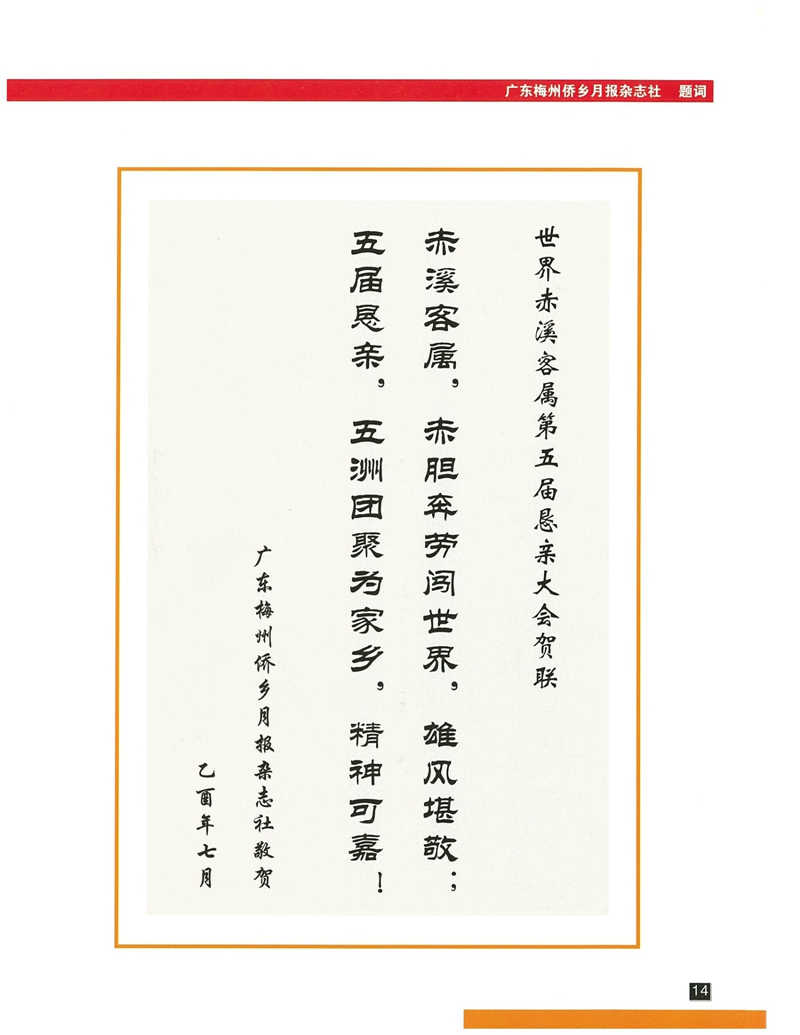 广东梅州侨乡月报杂志社 题词
世界赤溪客属第五届恳亲大会贺联
赤溪客属，赤胆奔劳闯世界，雄风堪敬；
五届恳亲，五洲团聚为家乡，精神可嘉！
广东梅州侨乡月报杂志社敬贺
乙酉年七月
14